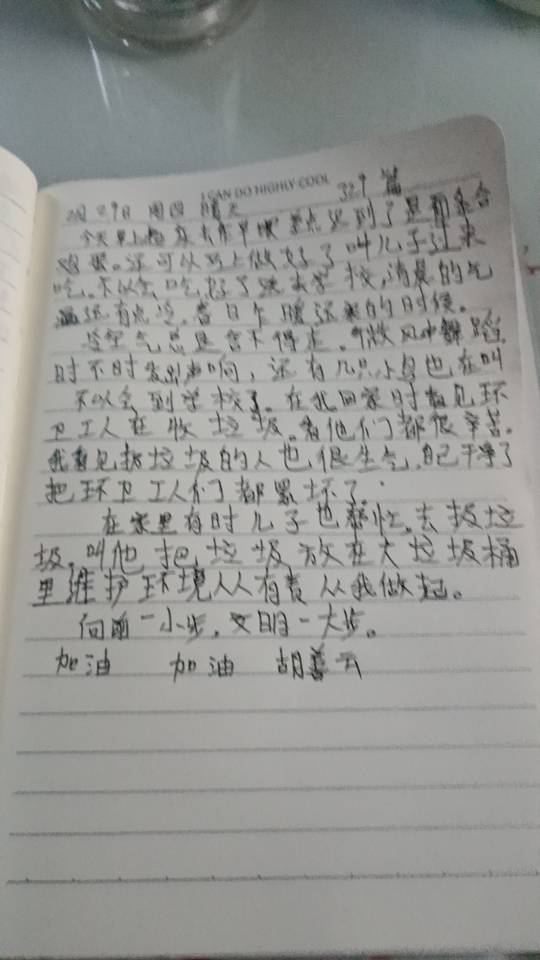 I CAN DO HIGHLY COOL
329 篇
月29日 周四 晴天
今天早上起床去作早饭 差点迟到了 是面条合
鸡蛋。还可以马上做好了叫儿子过来
吃。不以会吃好了送去学校,清晨的气
温还有点冷,昔日乍暖还寒的时候。
冷空气总是舍不得走。微风中舞蹈,
时不时发出声响,还有几只小鸟也在叫
不以会到学校了。在我回家时看见环
卫工人在收垃圾。看他们都很辛苦。
我看见扔垃圾的人也很生气,自己干净了
把环卫工人们都累坏了。
在家里有时儿子也帮忙去扔垃
圾,叫他把垃圾放在大垃圾桶
里维护环境人人有责从我做起。
向前一小步,文明一大步。
加油 加油 胡善云